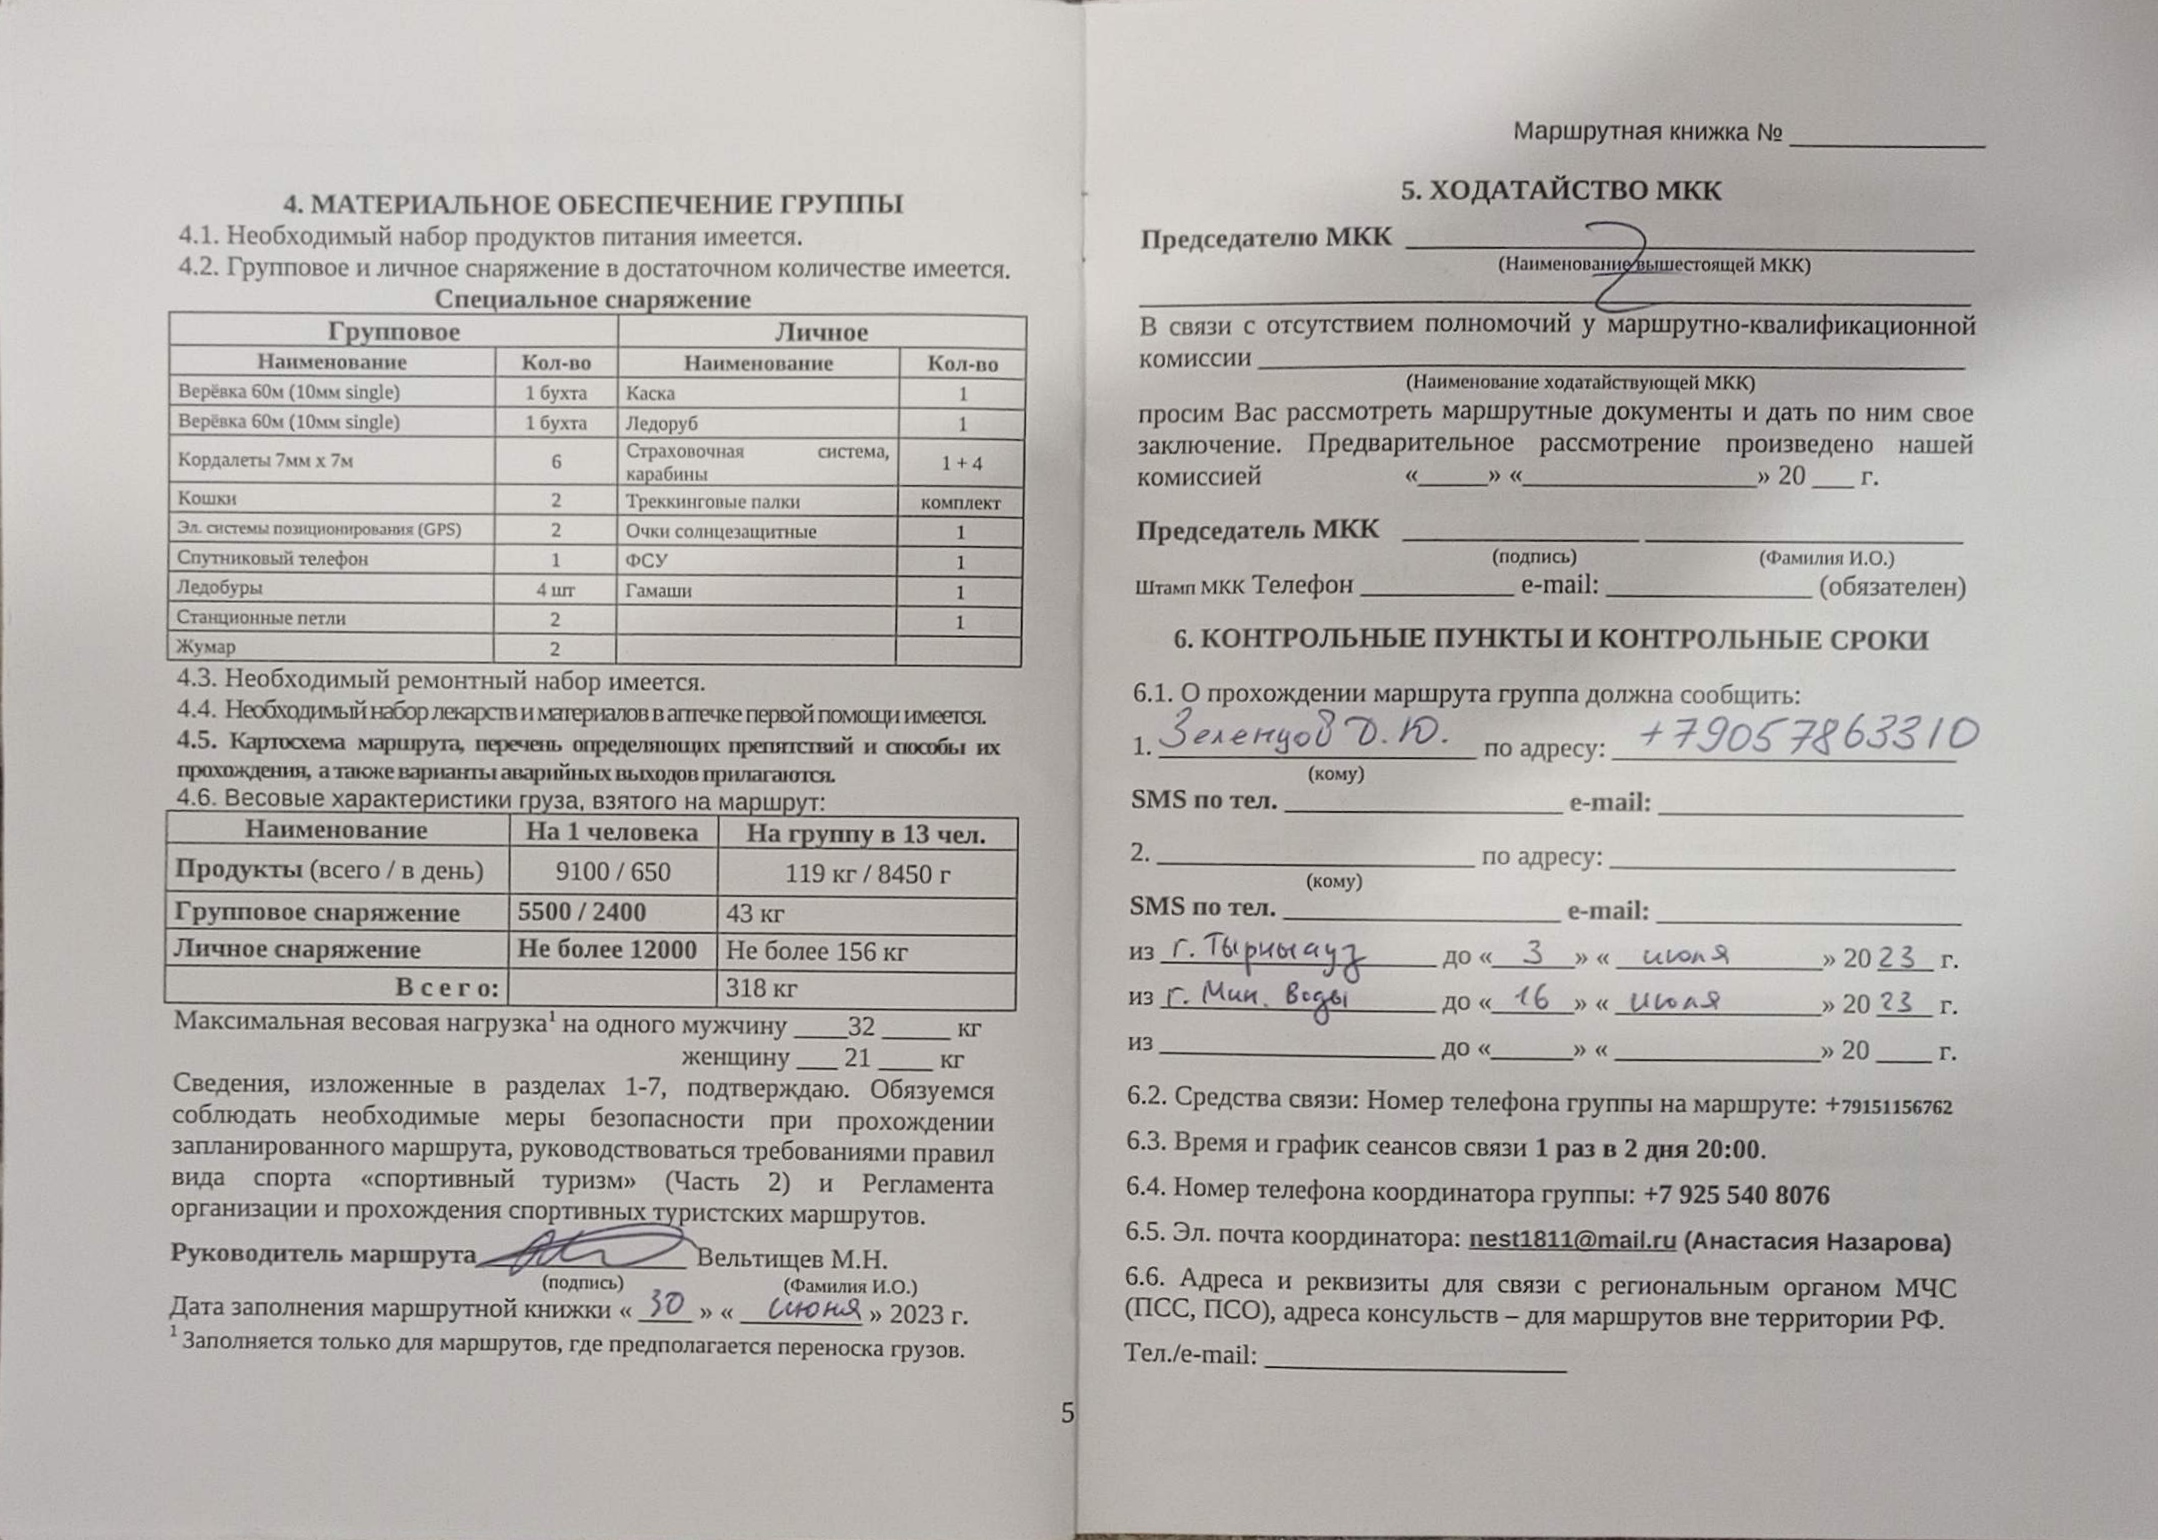 4. МАТЕРИАЛЬНОЕ ОБЕСПЕЧЕНИЕ ГРУППЫ
4.1. Необходимый набор продуктов питания имеется.
4.2. Групповое и личное снаряжение в достаточном количестве имеется.
Специальное снаряжение
Групповое Личное
Наименование Кол-во Наименование Кол-во
Верёвка 60м (10мм single) 1 бухта Каска 1
Верёвка 60м (10мм single) 1 бухта Ледоруб 1
Кордалеты 7мм х 7м 6 Страховочная система, карабины 1 + 4
Кошки 2 Треккинговые палки комплект
Эл. системы позиционирования (GPS) 2 Очки солнцезащитные 1
Спутниковый телефон 1 ФСУ 1
Ледобуры 4 шт Гамаши 1
Станционные петли 2 1
Жумар 2
4.3. Необходимый ремонтный набор имеется.
4.4. Необходимый набор лекарств и материалов в аптечке первой помощи имеется.
4.5. Картосхема маршрута, перечень определяющих препятствий и способы их
прохождения, а также варианты аварийных выходов прилагаются.
4.6. Весовые характеристики груза, взятого на маршрут:
Наименование На 1 человека На группу в 13 чел.
Продукты (всего / в день) 9100 / 650 119 кг / 8450 г
Групповое снаряжение 5500 / 2400 43 кг
Личное снаряжение Не более 12000 Не более 156 кг
В с е г о: 318 кг
Максимальная весовая нагрузка1 на одного мужчину ____32 _____ кг
женщину ___ 21 ____ кг
Сведения, изложенные в разделах 1-7, подтверждаю. Обязуемся
соблюдать необходимые меры безопасности при прохождении
запланированного маршрута, руководствоваться требованиями правил
вида спорта «спортивный туризм» (Часть 2) и Регламента
организации и прохождения спортивных туристских маршрутов.
Руководитель маршрута Вельтищев М.Н.
(подпись) (Фамилия И.О.)
Дата заполнения маршрутной книжки « 30 » « июня » 2023 г.
1 Заполняется только для маршрутов, где предполагается переноска грузов.
5
Маршрутная книжка № ____________
5. ХОДАТАЙСТВО МКК
Председателю МКК
(Наименование вышестоящей МКК)
В связи с отсутствием полномочий у маршрутно-квалификационной
комиссии
(Наименование ходатайствующей МКК)
просим Вас рассмотреть маршрутные документы и дать по ним свое
заключение. Предварительное рассмотрение произведено нашей
комиссией «_____» «________________» 20 ___ г.
Председатель МКК
(подпись) (Фамилия И.О.)
Штамп МКК Телефон ___________ e-mail: ______________ (обязателен)
6. КОНТРОЛЬНЫЕ ПУНКТЫ И КОНТРОЛЬНЫЕ СРОКИ
6.1. О прохождении маршрута группа должна сообщить:
1. Зеленцов Д.Ю. по адресу: +79057863310
(кому)
SMS по тел. ____________________ e-mail: ______________________
2. _______________________ по адресу: _________________________
(кому)
SMS по тел. ____________________ e-mail: ______________________
из г. Тырныауз до « 3 » « июля » 20 23 г.
из г. Мин. Воды до « 16 » « июля » 20 23 г.
из ____________________ до «______» « _______________» 20 ____ г.
6.2. Средства связи: Номер телефона группы на маршруте: +79151156762
6.3. Время и график сеансов связи 1 раз в 2 дня 20:00.
6.4. Номер телефона координатора группы: +7 925 540 8076
6.5. Эл. почта координатора: nest1811@mail.ru (Анастасия Назарова)
6.6. Адреса и реквизиты для связи с региональным органом МЧС
(ПСС, ПСО), адреса консульств – для маршрутов вне территории РФ.
Тел./e-mail: ______________________